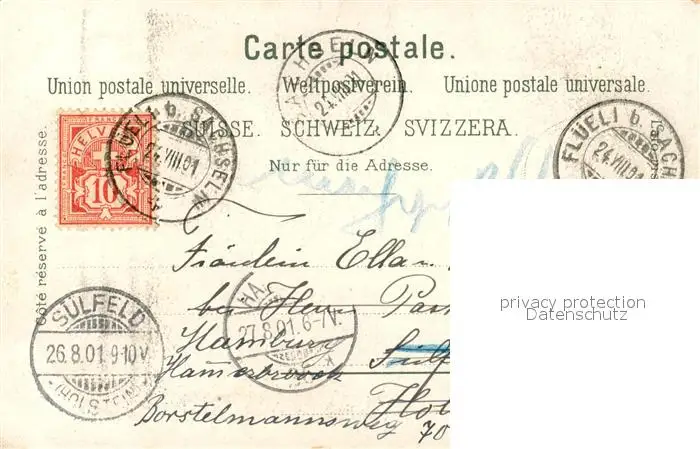 Carte postale.
Union postale universelle. Weltpostverein. Unione postale universale.
SUISSE. SCHWEIZ. SVIZZERA.
Nur für die Adresse.
Côté réservé à l'adresse.
HELVETIA
10
FLÜELI b. SACHSELN
24.VIII.01
SACHSELN
24.VIII.01
FLÜELI b. SACH
24.VIII.01
Fräulein Ella
bei Herrn Pas
Hamburg Sülf
Hammerbrook Hol
Borstelmannsweg 70
SÜLFELD
26.8.01.9-10V
(HOLSTEIN)
HA
27.8.01.6-7V.
privacy protection
Datenschutz